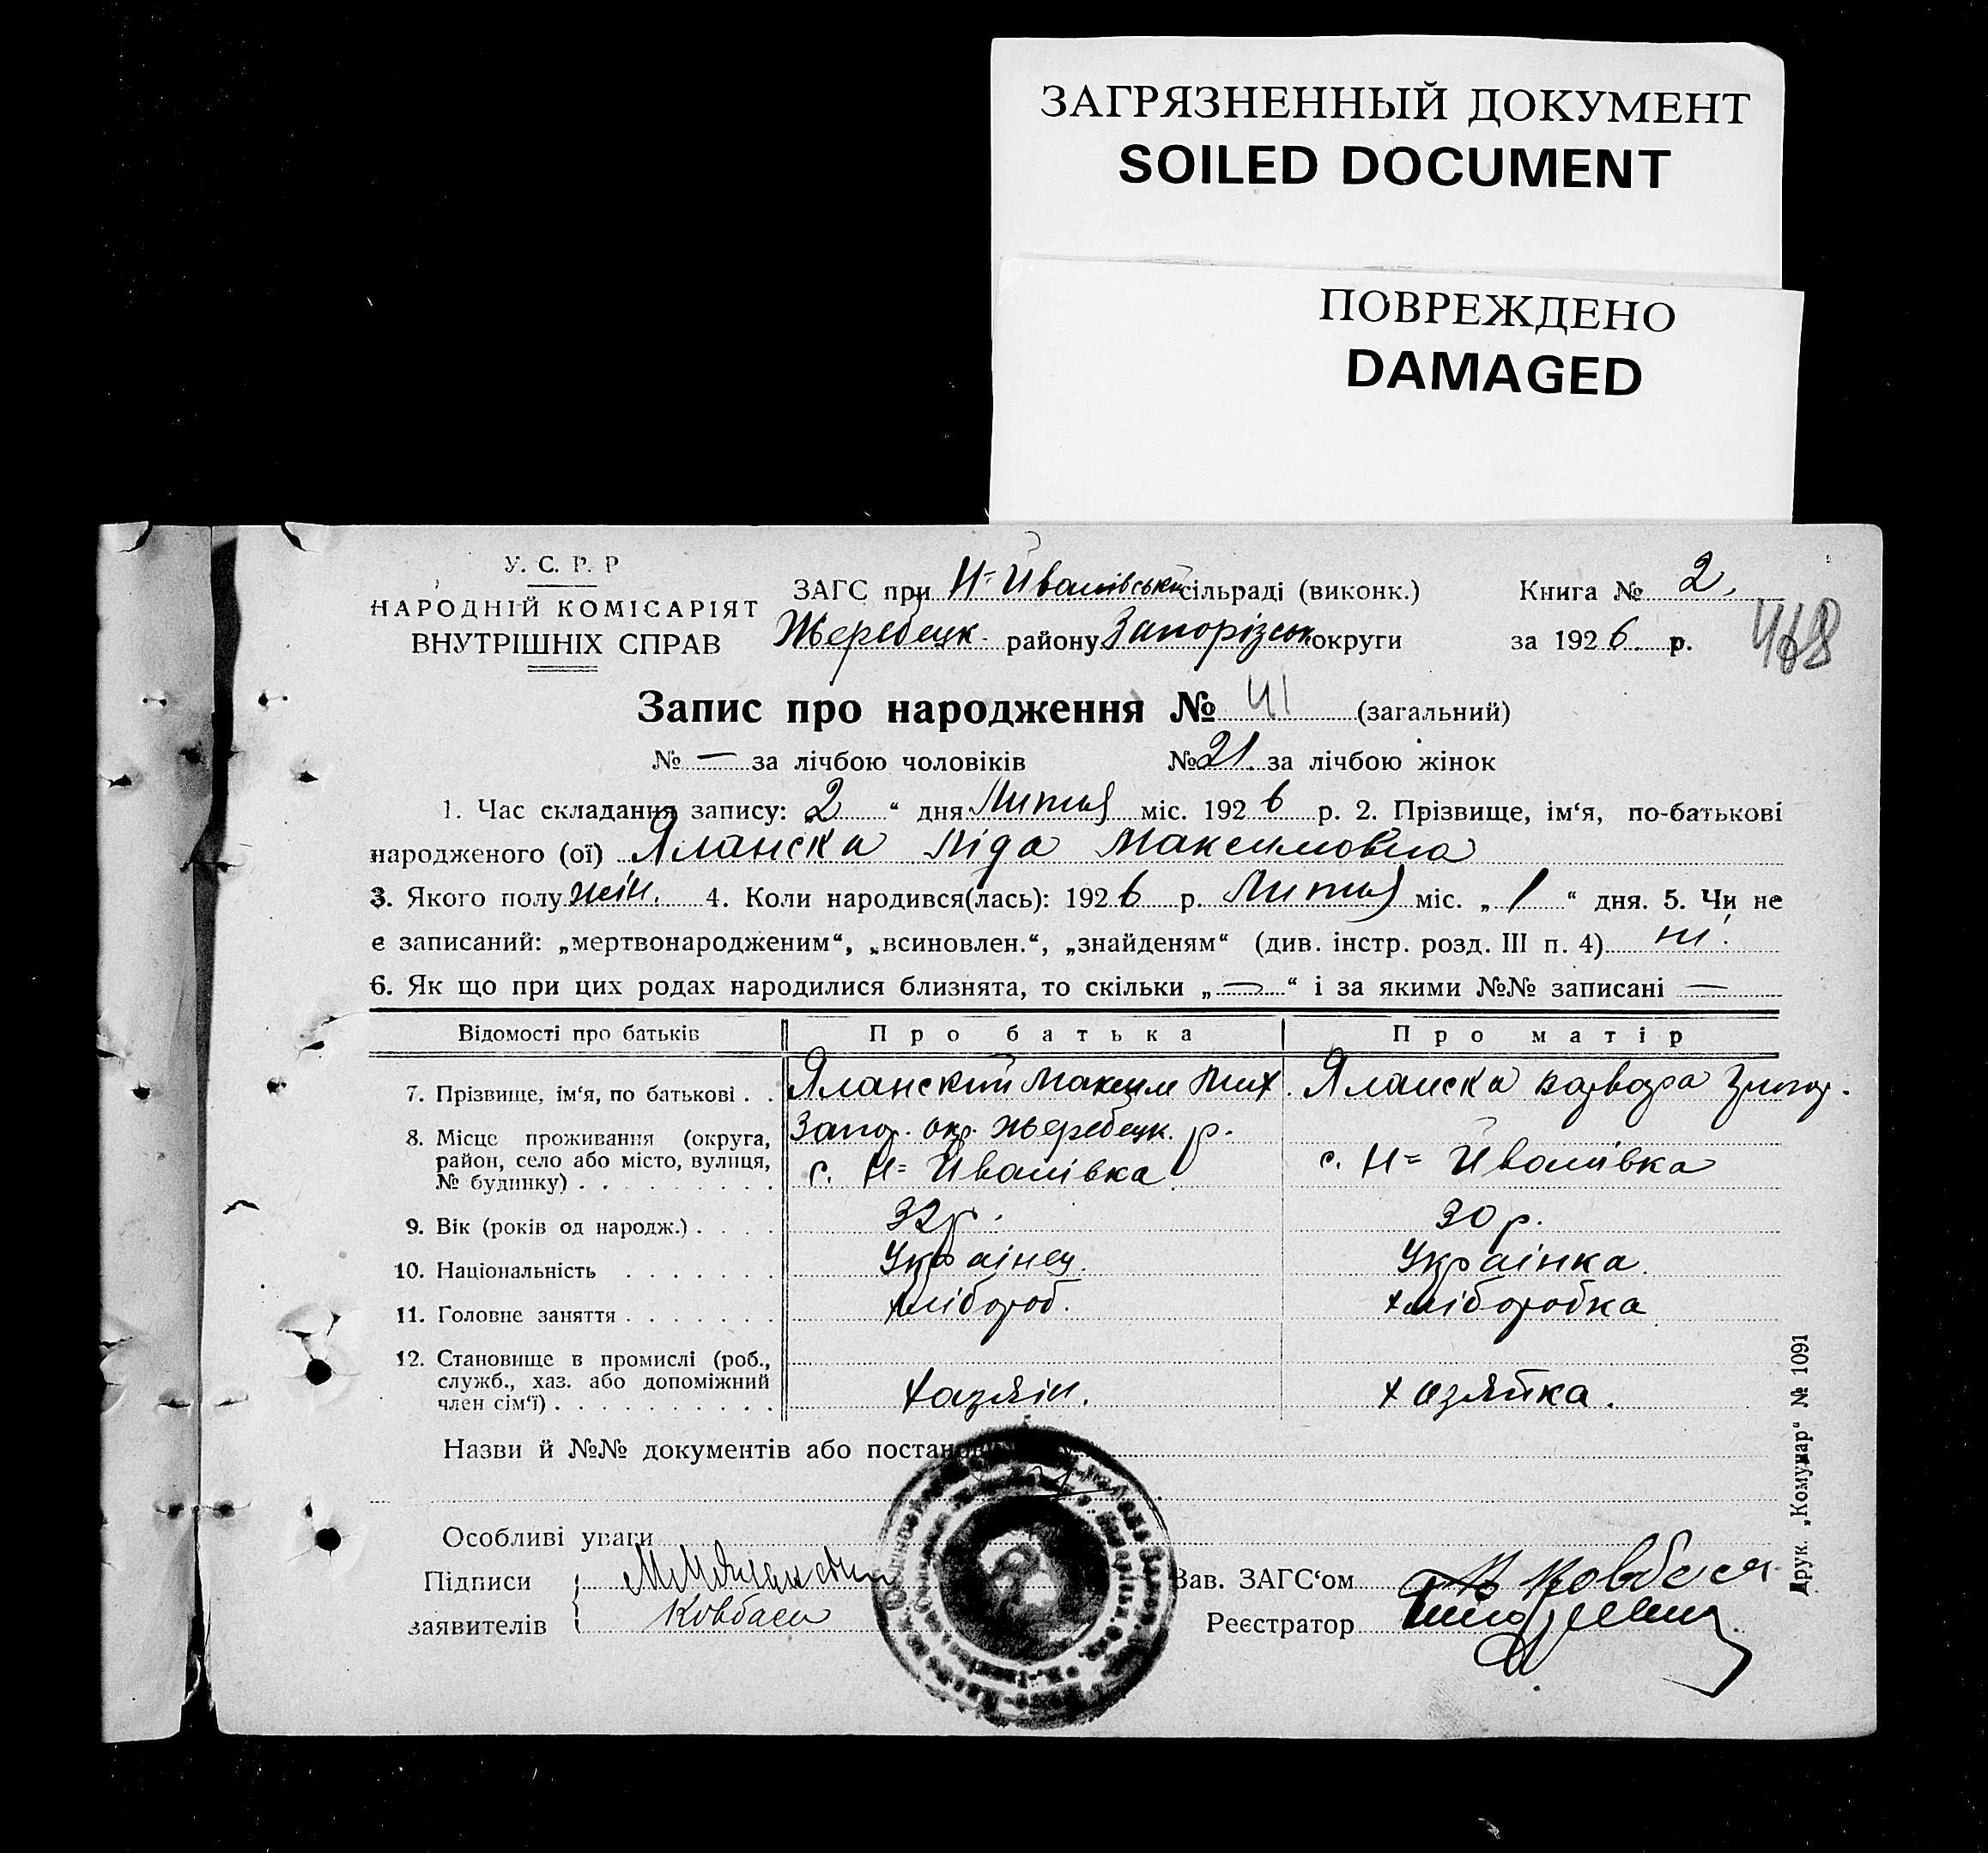 ЗАГРЯЗНЕННЫЙ ДОКУМЕНТ
SOILED DOCUMENT
ПОВРЕЖДЕНО
DAMAGED
У. С. Р. Р
НАРОДНІЙ КОМІСАРІЯТ
ВНУТРІШНІХ СПРАВ
ЗАГС при Н-Иванівській сільраді (виконк.)
Жеребецк. району Запорізськ округи
Книга № 2.
за 1926 р.
468
Запис про народження № 41 (загальний)
№ — за лічбою чоловіків № 21. за лічбою жінок
1. Час складання запису: „2“ дня Липня міс. 1926 р. 2. Прізвище, ім‘я, по-батькові
народженого (ої) Яланска Ліда Максимовна
3. Якого полу жін. 4. Коли народився(лась): 1926 р. Липня міс. „1“ дня. 5. Чи не
є записаний: „мертвонародженим“, „всиновлен.“, „знайденям“ (див. інстр. розд. III п. 4) ні.
6. Як що при цих родах народилися близнята, то скільки „—“ і за якими №№ записані —
Відомості про батьків Про батька Про матір
7. Прізвище, ім‘я, по батькові . . Яланский Максим Мих. Яланска Варвара Григор.
8. Місце проживання (округа, Запор. окр. Жеребецк. р.
район, село або місто, вулиця, с. Н= Иванівка с. Н= Иванівка
№ будинку) . . . . . . . . .
9. Вік (років од народж.) . . . . 32 р. 30 р.
10. Національність . . . . . . . Украінец. Украінка.
11. Головне заняття . . . . . . . хлібороб. хліборобка
12. Становище в промислі (роб.,
служб., хаз. або допоміжний
член сім‘ї) . . . . . . . . . . хазяін. хазяйка.
Назви й №№ документів або постанов
Особливі уваги
Підписи
заявителів
Ковбаси
Зав. ЗАГС‘ом Ковбаса
Реєстратор
Друк. „Комунар“ № 1091